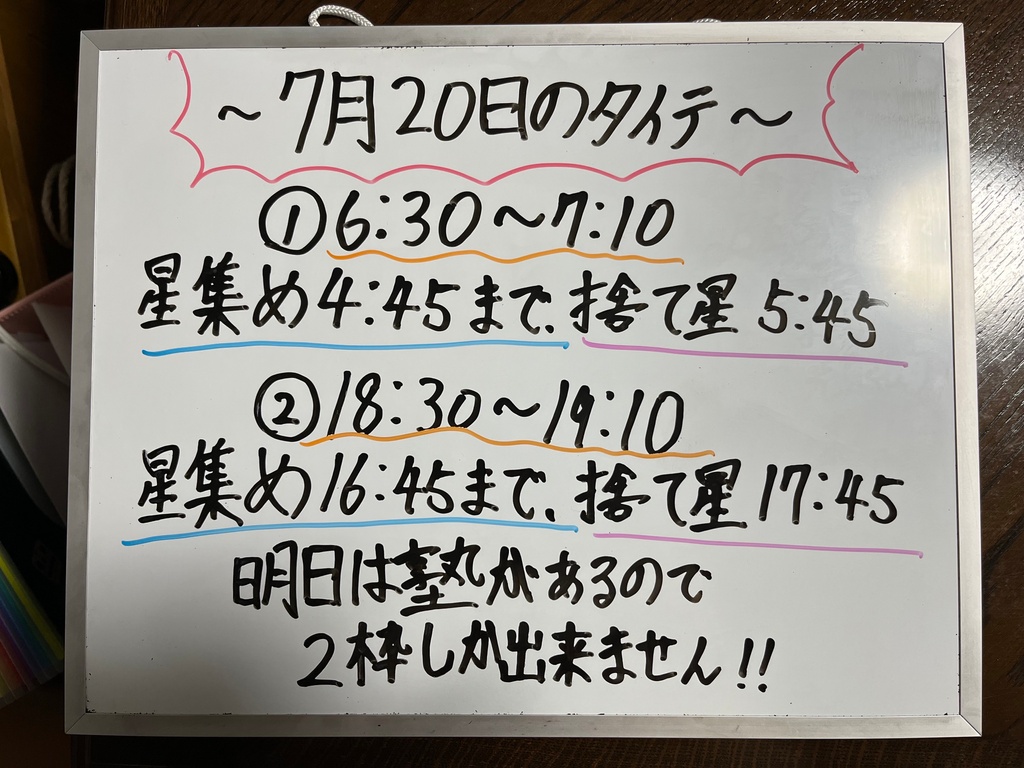 ～7月20日のタイテ～
①6:30～7:10
星集め4:45まで、捨て星 5:45
②18:30～19:10
星集め16:45まで、捨て星17:45
明日は塾があるので
2枠しか出来ません!!